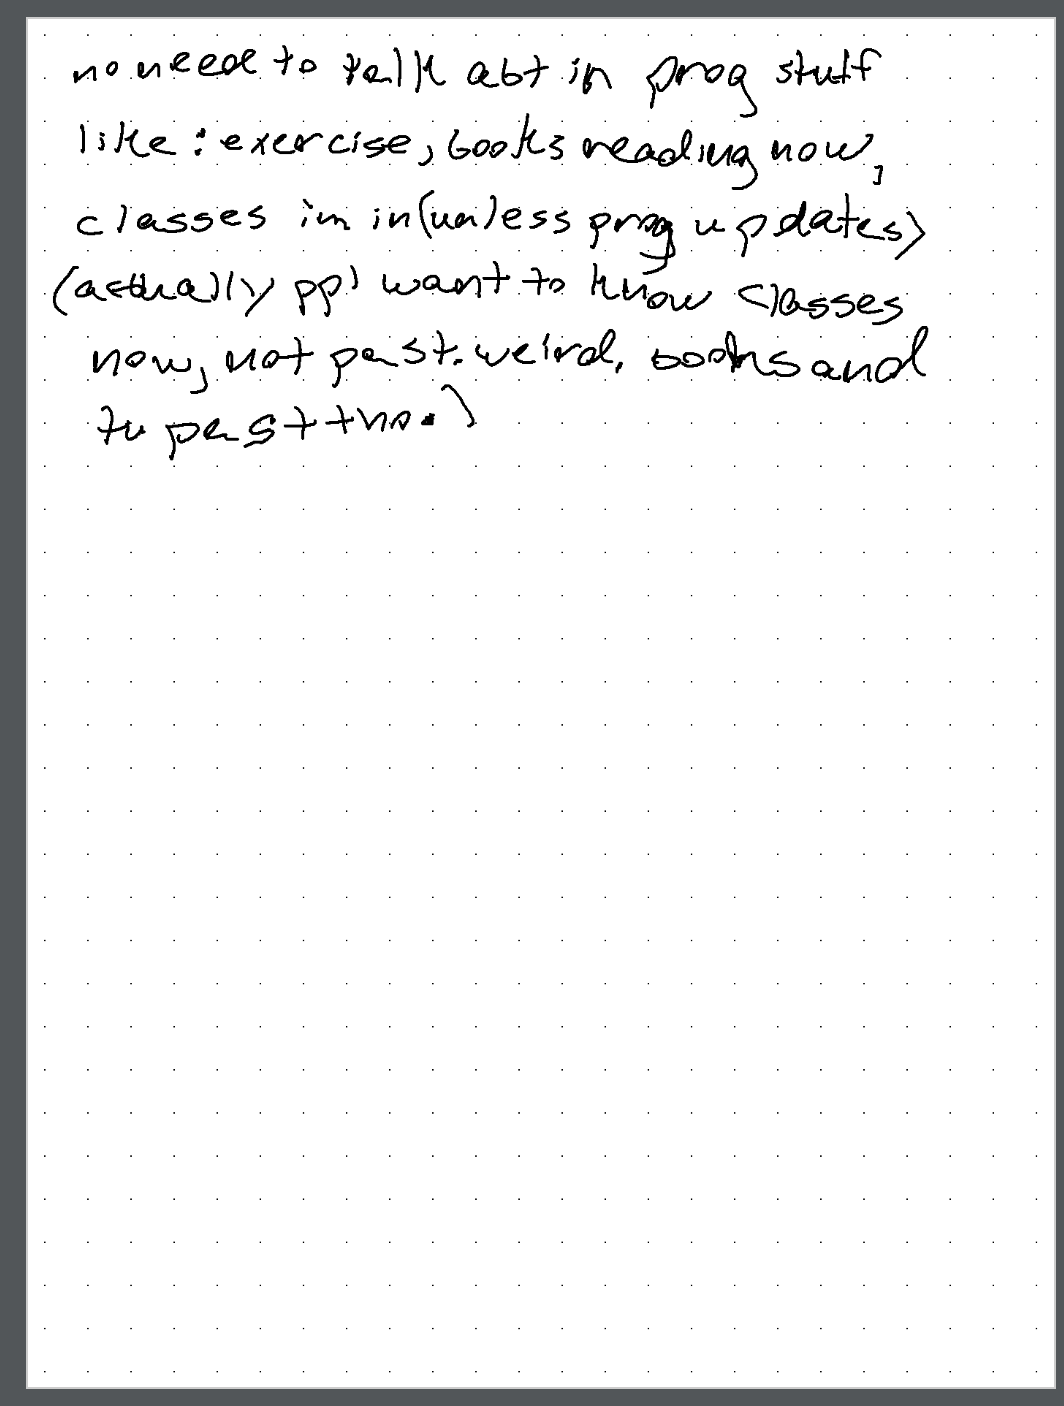 no need to talk abt in prog stuff
like: exercise, books reading now,
classes im in (unless prog updates)
(actually ppl want to know classes
now, not past. weird. books and
tv past tho.)